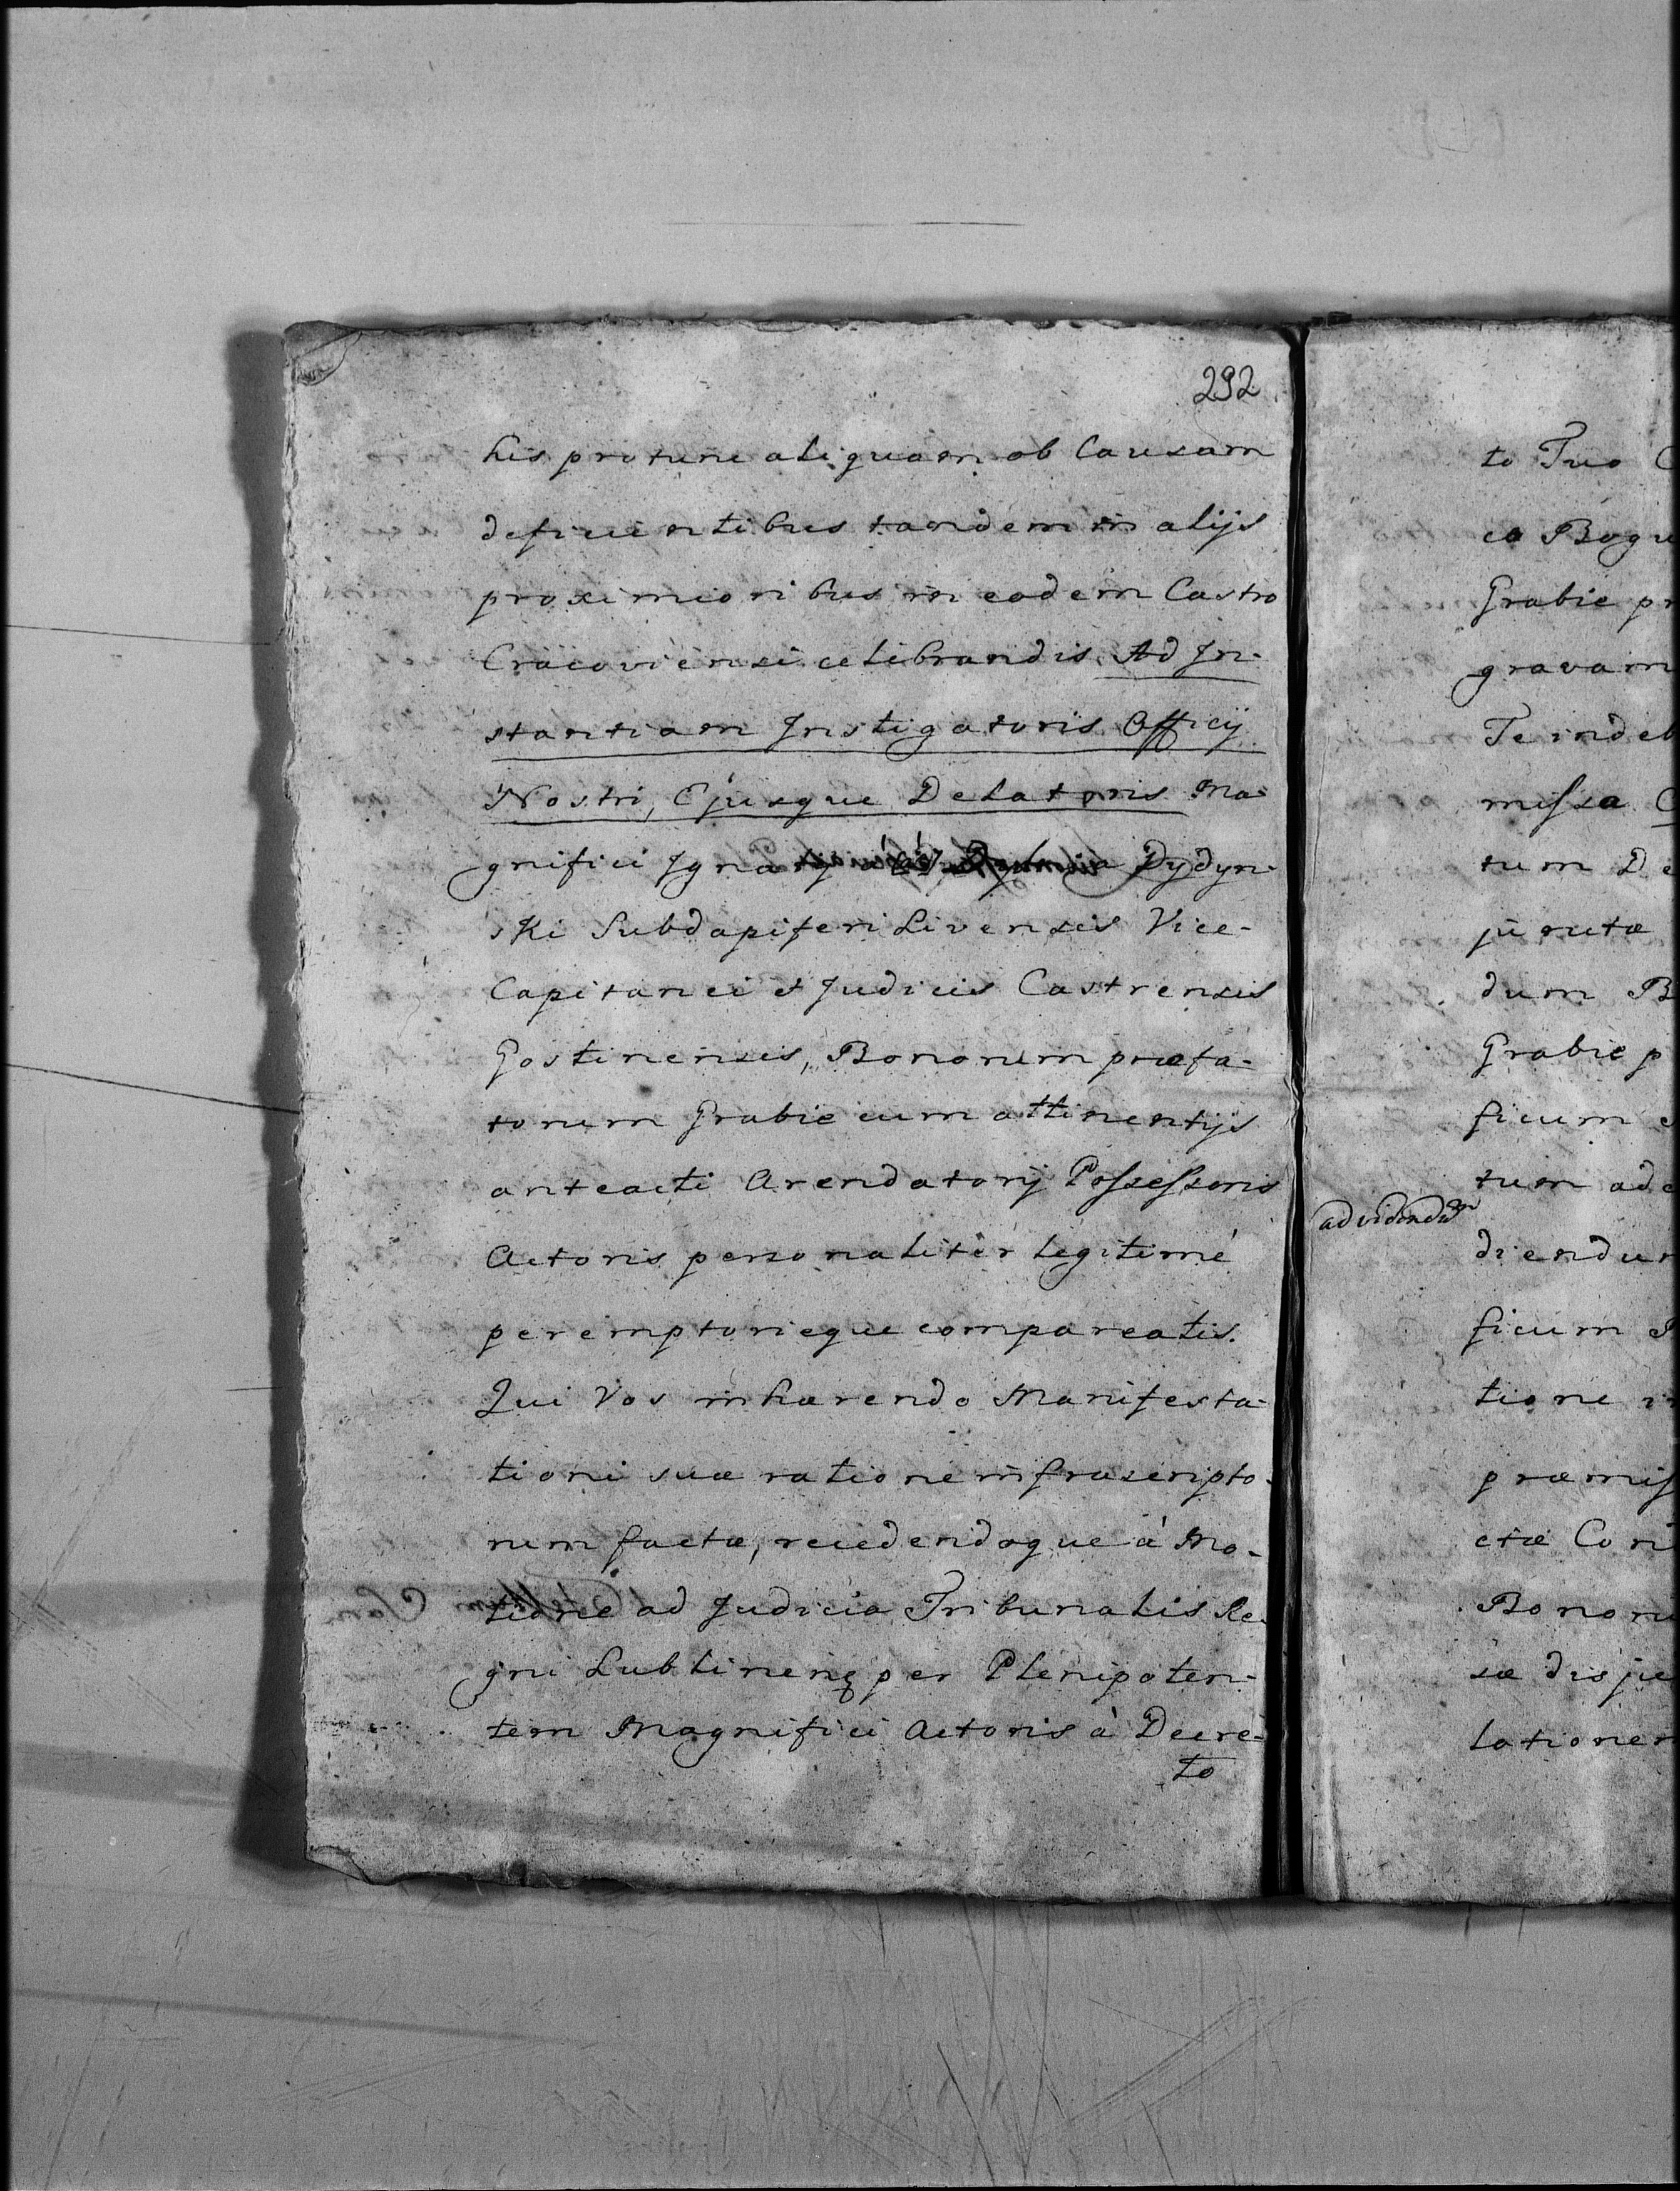 292
his protunc aliquam ob Causam
deficientibus tandem in alijs
proximioribus in eodem Castro
Cracoviensi celibrandis. Ad In-
stantiam Instigatoris Officij
Nostri, Ejusque Delatoris Ma-
gnifici Ignatij Dydyn-
ski Subdapiferi Livensis Vice-
Capitanei et Judicis Castrensis
Gostinensis, Bonorum præfa-
torum Grabie cum attinentijs
anteacti Arendatorij Possessoris
Actoris personalitèr legitimé
peremptorieque compareatis.
Qui Vos inhærendo Manifesta-
tioni suæ ratione infrascripto-
rum factæ, recedendoque à Mo-
tione ad Judicia Tribunalis Re-
gni Lublinenq per Plenipoten-
tem Magnifici Actoris à Decre-
to
to Tuo C
ca Bogu
Grabie pr
gravam
Te indeb
missa C
tum De
jurutæ
dum B
Grabie p
ficum
tum ad
ad videndum
diendu
ficum
tione
præmis
ctæ Con
Bonoru
sæ disju
lationem